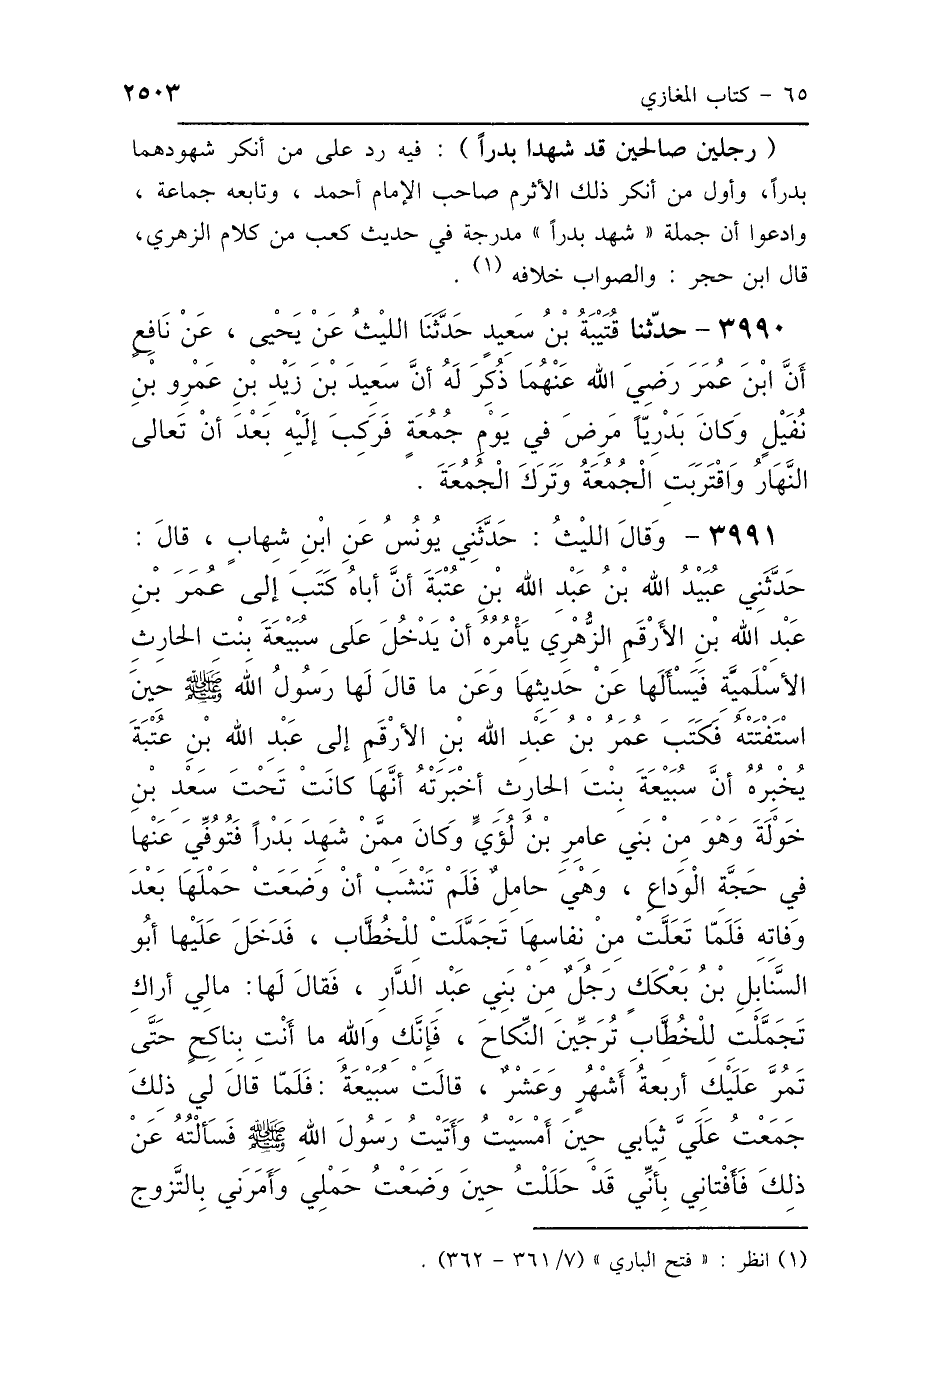 ٦٥ - كتاب المغازي ٢٥٠٣
( رجلين صالحين قد شهدا بدراً ) : فيه رد على من أنكر شهودهما
بدراً، وأول من أنكر ذلك الأثرم صاحب الإمام أحمد ، وتابعه جماعة ،
وادعوا أن جملة « شهد بدراً » مدرجة في حديث كعب من كلام الزهري،
قال ابن حجر : والصواب خلافه (١) .
٣٩٩٠ - حدّثنا قُتَيْبَةُ بْنُ سَعِيدٍ حَدَّثَنَا الليْثُ عَنْ يَحْيى ، عَنْ نَافِعٍ
أَنَّ ابْنَ عُمَرَ رَضِيَ الله عَنْهُمَا ذُكِرَ لَهُ أنَّ سَعِيدَ بْنَ زَيْدِ بْنِ عَمْرِو بْنِ
نُفَيْلٍ وَكَانَ بَدْرِيّاً مَرِضَ في يَوْمِ جُمُعَةٍ فَرَكِبَ إلَيْهِ بَعْدَ أنْ تَعالى
النَّهَارُ وَاقْتَرَبَتِ الْجُمُعَةُ وَتَرَكَ الْجُمُعَةَ .
٣٩٩١ - وَقالَ الليْثُ : حَدَّثَنِي يُونُسُ عَنِ ابْنِ شهابٍ ، قالَ :
حَدَّثَنِي عُبَيْدُ الله بْنُ عَبْدِ الله بْنِ عُتْبَةَ أنَّ أباهُ كَتَبَ إلى عُمَرَ بْنِ
عَبْدِ الله بْنِ الأرْقَمِ الزُّهْرِي يَأْمُرُهُ أنْ يَدْخُلَ عَلى سُبَيْعَةَ بِنْتِ الحارِثِ
الأسْلَمِيَّةِ فَيَسْأَلَها عَنْ حَدِيثِهَا وَعَن ما قالَ لَها رَسُولُ الله ﷺ حِينَ
اسْتَفْتَتْهُ فَكَتَبَ عُمَرُ بْنُ عَبْدِ الله بْنِ الأرْقَمِ إلى عَبْدِ الله بْنِ عُتْبَةَ
يُخْبِرُهُ أنَّ سُبَيْعَةَ بِنْتَ الحارِثِ أخْبَرَتْهُ أنَّها كانَتْ تَحْتَ سَعْدِ بْنِ
خَوْلَةَ وَهْوَ مِنْ بَنِي عامِرِ بْنُ لُؤَيٍّ وَكانَ مِمَّنْ شَهِدَ بَدْراً فَتُوُفِّيَ عَنْها
في حَجَّةِ الْوَداعِ ، وَهْيَ حامِلٌ فَلَمْ تَنْشَبْ أنْ وَضَعَتْ حَمْلَهَا بَعْدَ
وَفاتِهِ فَلَمّا تَعَلَّتْ مِنْ نفاسِهَا تَجَمَّلَتْ لِلْخُطَّابِ ، فَدَخَلَ عَلَيْها أبُو
السَّنابِلِ بْنُ بَعْكَكٍ رَجُلٌ مِنْ بَنِي عَبْدِ الدَّارِ ، فَقالَ لَها: مالي أراكِ
تَجَمَّلْتِ لِلْخُطَّابِ تُرَجِّينَ النِّكاحَ ، فَإنَّكِ وَالله ما أَنْتِ بِناكِحٍ حَتَّى
تَمُرَّ عَلَيْكِ أربعةُ أشْهُرٍ وَعَشْرٌ ، قالَتْ سُبَيْعَةُ :فَلَمّا قالَ لي ذلِكَ
جَمَعْتُ عَلَيَّ ثِيَابي حِينَ أَمْسَيْتُ وَأَتَيْتُ رَسُولَ الله ﷺ فَسَأَلْتُهُ عَنْ
ذلِكَ فَأَفْتانِي بِأنِّي قَدْ حَلَلْتُ حِينَ وَضَعْتُ حَمْلِي وَأَمَرَنِي بِالتَّزوجِ
(١) انظر : « فتح الباري » (٣٦١/٧ - ٣٦٢) .